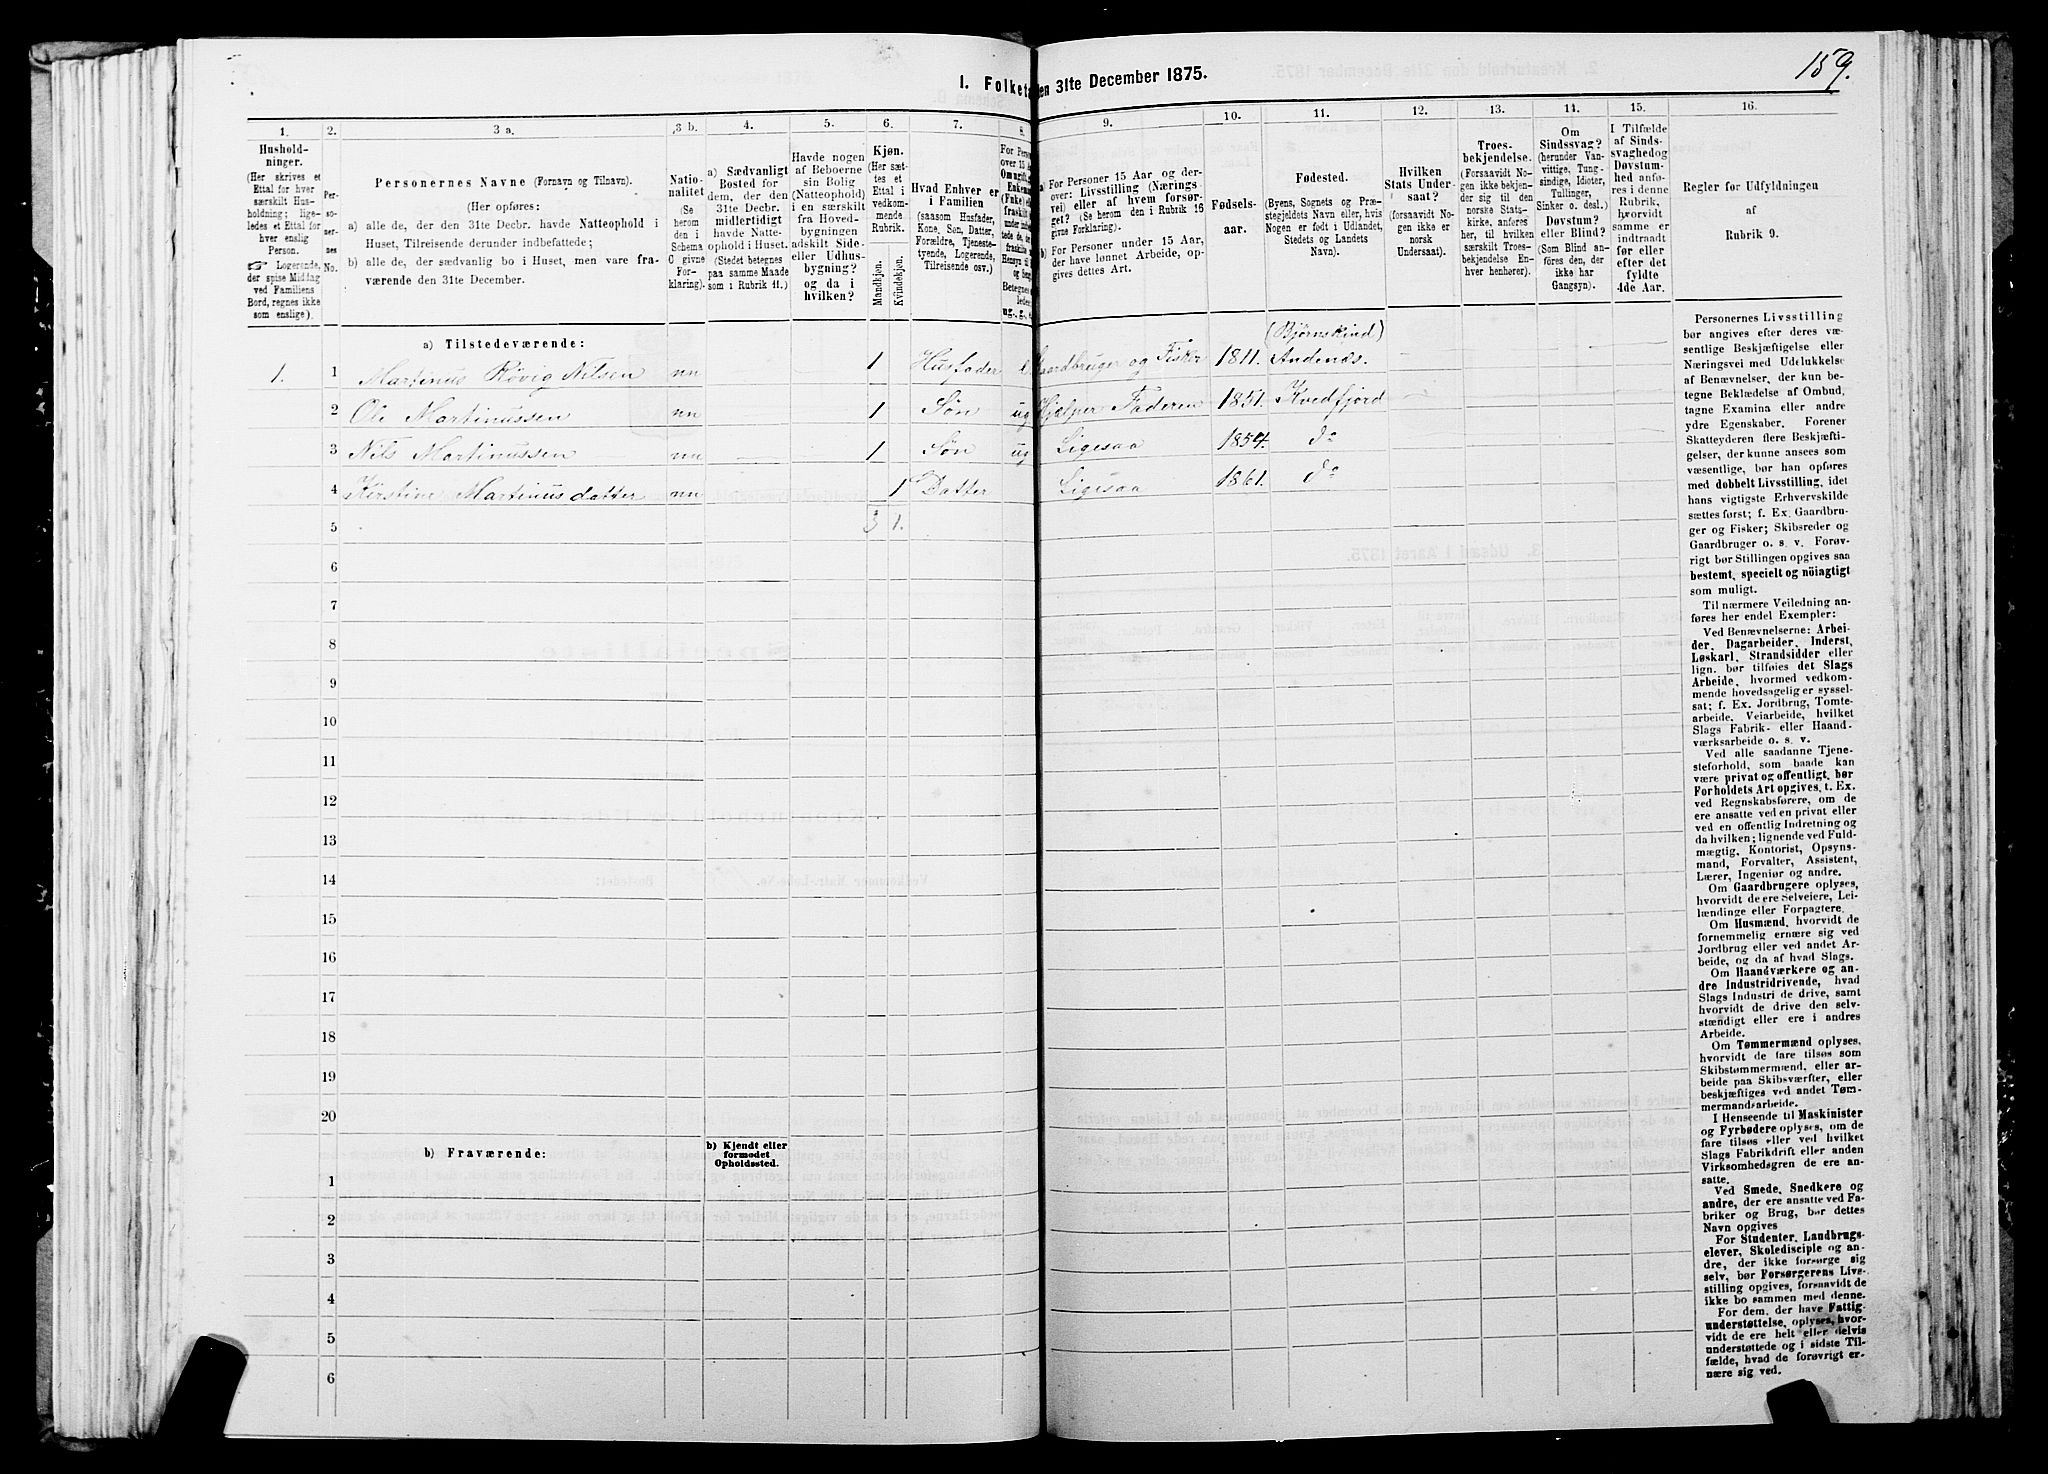 159.
I. Folketa en 31te December 1875.
1.
2.
3 a.
3 b.
4.
5.
6.
7.
8.
9.
10.
11.
12.
13.
14.
15.
16.
Hushold-
ninger.
(Her skrives et
Ettal for hver
særskilt Hus-
holdning; lige-
ledes et Ettal for
hver enslig
Person.
☞ Logerende,
der spise Middag
ved Familiens
Bord, regnes ikke
som enslige).
Per-
so-
ner-
nes
No.
Personernes Navne (Fornavn og Tilnavn).
(Her opføres:
a) alle de, der den 31te Decbr. havde Natteophold i
Huset, Tilreisende derunder indbefattede;
b) alle de, der sædvanlig bo i Huset, men vare fra-
værende den 31te December.
Natio-
nalitet
(Se
herom
den i
Schema
C givne
For-
klaring).
a) Sædvanligt
Bosted for
dem, der den
31te Decbr.
midlertidigt
havde Natte-
ophold i Huset.
(Stedet betegnes
paa samme Maade
som i Rubrik 11.)
Havde nogen
af Beboerne
sin Bolig
(Natteophold)
i en særskilt
fra Hoved-
bygningen
adskilt Side-
eller Udhus-
bygning?
og da i
hvilken?
Kjøn.
(Her sæt-
tes et
Ettal i
vedkom-
mende
Rubrik.
Mandkjøn.
Kvindekjøn.
Hvad Enhver er
i Familien
(saasom Husfader,
Kone, Søn, Datter,
Forældre, Tjeneste-
tyende, Logerende,
Tilreisende osv.)
a) For Personer 15 Aar og der-
over: Livsstilling (Nærings-
vei) eller af hvem forsør-
get? (Se herom den i Rubrik 16
givne Forklaring).
b) For Personer under 15 Aar,
der have lønnet Arbeide, op-
gives dettes Art.
Fødsels-
aar.
Fødested.
(Byens, Sognets og Præ-
stegjeldets Navn eller, hvis
Nogen er født i Udlandet,
Stedets og Landets
Navn).
Hvilken
Stats Under-
saat?
(forsaavidt No-
gen ikke er
norsk
Undersaat).
Troes-
bekjendelse.
(Forsaavidt No-
gen ikke bekjen-
der sig til den
norske Stats-
kirke, anføres
her, til hvilken
særskilt Troes-
bekjendelse En-
hver henhører).
Om
Sindssvag?
(herunder Van-
vittige, Tung-
sindige, Idioter,
Tullinger,
Sinker o. desl.)
Døvstum?
eller Blind?
(Som Blind an-
føres den, der
ikke har
Gangsyn).
I Tilfælde
af Sinds-
svaghed og
Døvstum-
hed anfø-
res i denne
Rubrik,
hvorvidt
samme er
indtraadt
før eller
efter det
fyldte
4de Aar.
Regler for Udfyldningen
af
Rubrik 9.
a) Tilstedeværende:
(Bjørnskind)
1. 1 Martinus Rövig Nilsen nn 1 Husfader Gaardbruger og Fisker 1811. Andenæs.
2 Ole Martinussen nn 1 Søn ug Hjelper Faderen 1851. Kvedfjord
3 Nils Martinussen nn 1 Søn ug Ligesaa 1854. do
4 Kirstine Martinusdatter nn 1 Datter Ligesaa 1861. do
5 3 1.
6
7
8
9
10
11
12
13
14
15
16
17
18
19
20
b) Fraværende:
b) Kjendt eller
formodet
Opholdssted.
1
2
3
4
5
6
Personernes Livsstilling
bør angives efter deres væ-
sentlige Beskjæftigelse eller
Næringsvei med Udelukkelse
af Benævnelser, der kun be-
tegne Beklædelse af Ombud,
tagne Examina eller andre
ydre Egenskaber. Forener
Skatteyderen flere Beskjæfti-
gelser, der kunne ansees som
væsentlige, bør han opføres
med dobbelt Livsstilling, idet
hans vigtigste Erhvervskilde
sættes først; f. Ex. Gaardbru-
ger og Fisker; Skibsreder og
Gaardbruger o. s. v. Forøv-
rigt bør Stillingen opgives saa
bestemt, specielt og nöiagtigt
som muligt.
Til nærmere Veiledning an-
føres her endel Exempler:
Ved Benævnelserne: Arbei-
der, Dagarbeider, Inderst,
Løskarl, Strandsidder eller
lign. bør tilføies det Slags
Arbeide, hvormed vedkom-
mende hovedsagelig er syssel-
sat; f. Ex. Jordbrug, Tomte-
arbeide, Veiarbeide, hvilket
Slags Fabrik- eller Haand-
værksarbeide o. s. v.
Ved alle saadanne Tjene-
steforhold, som baade kan
være privat og offentligt, bør
Forholdets Art opgives, t. Ex.
ved Regnskabsførere, om de
ere ansatte ved en privat eller
ved en offentlig Indretning og
da hvilken; lignende ved Fuld-
mægtig, Kontorist, Opsyns-
mand, Forvalter, Assistent,
Lærer, Ingeniør og andre.
Om Gaardbrugere oplyses,
hvorvidt de ere Selveiere, Lei-
lændinge eller Forpagtere.
Om Husmænd, hvorvidt de
fornemmelig ernære sig ved
Jordbrug eller ved andet Ar-
beide, og da af hvad Slags.
Om Haandværkere og an-
dre Industridrivende, hvad
Slags Industri de drive, samt
hvorvidt de drive den selv-
stændigt eller ere i andres
Arbeide.
Om Tømmermænd oplyses,
hvorvidt de fare tilsøs som
Skibstømmermænd, eller ar-
beide paa Skibsværfter, eller
beskjæftiges ved andet Tøm-
mermandsarbeide.
I Henseende til Maskinister
og Fyrbødere oplyses, om de
fare tilsøs eller ved hvilket
Slags Fabrikdrift eller anden
Virksomhedsgren de ere an-
satte.
Ved Smede, Snedkere og
andre, der ere ansatte ved Fa-
briker og Brug, bør dettes
Navn opgives
For Studenter, Landbrugs-
elever, Skoledisciple og an-
dre, der ikke forsørge sig
selv, bør Forsørgerens Livs-
stilling opgives, forsaavidt de
ikke bo sammen med denne.
For dem, der have Fattig-
understøttelse, oplyses, hvor-
vidt de ere helt eller delvis
understøttede og i sidste Til-
fælde, hvad de forøvrigt er-
nære sig ved.